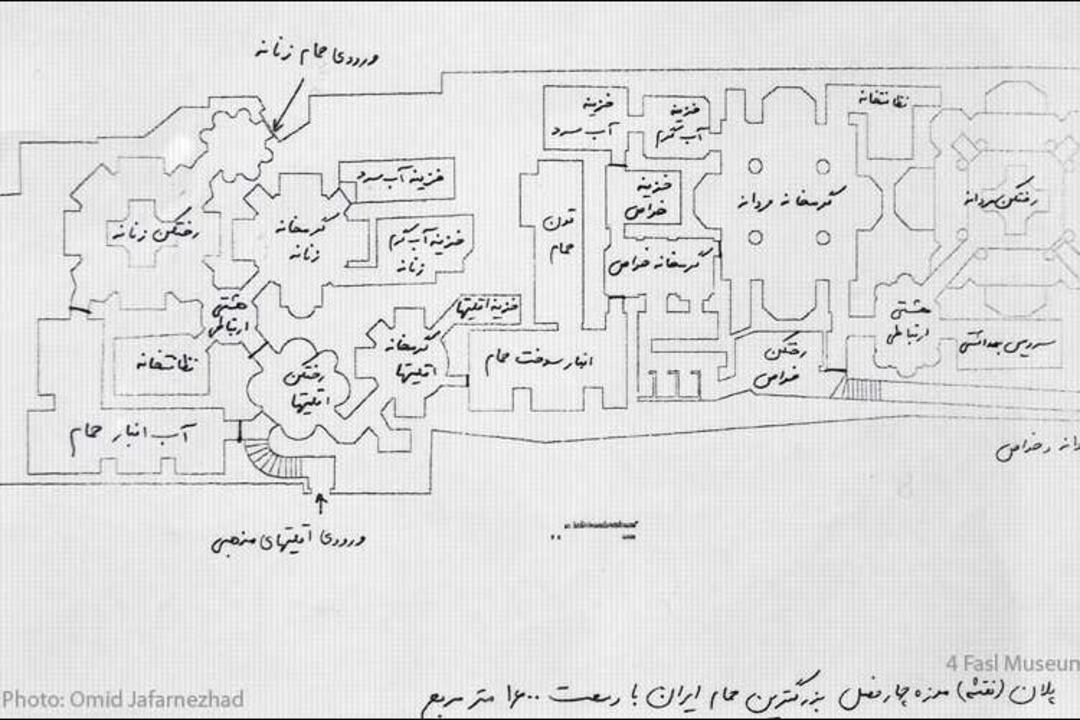 ورودی حمام زنانه
خزینه
آب سرد
خزینه
آب گرم
نظافتخانه
خزینه آب سرد
خزینه
خواص
گرمخانه مردانه
رختکن مردانه
رختکن زنانه
گرمخانه
زنانه
خزینه آب گرم
زنانه
تون
حمام
گرمخانه خواص
هشتی
ارتباطی
خزینه اقلیتها
هشتی
ارتباطی
نظافتخانه
رختکن
اقلیتها
گرمخانه
اقلیتها
انبار سوخت حمام
رختکن
خواص
سرویس بهداشتی
آب انبار حمام
و خواص
ورودی اقلیتهای مذهبی
4 Fasl Museum
Photo: Omid Jafarnezhad
پلان (نقشه) موزه چهار فصل بزرگترین حمام ایران با وسعت ۱۶۰۰ متر مربع